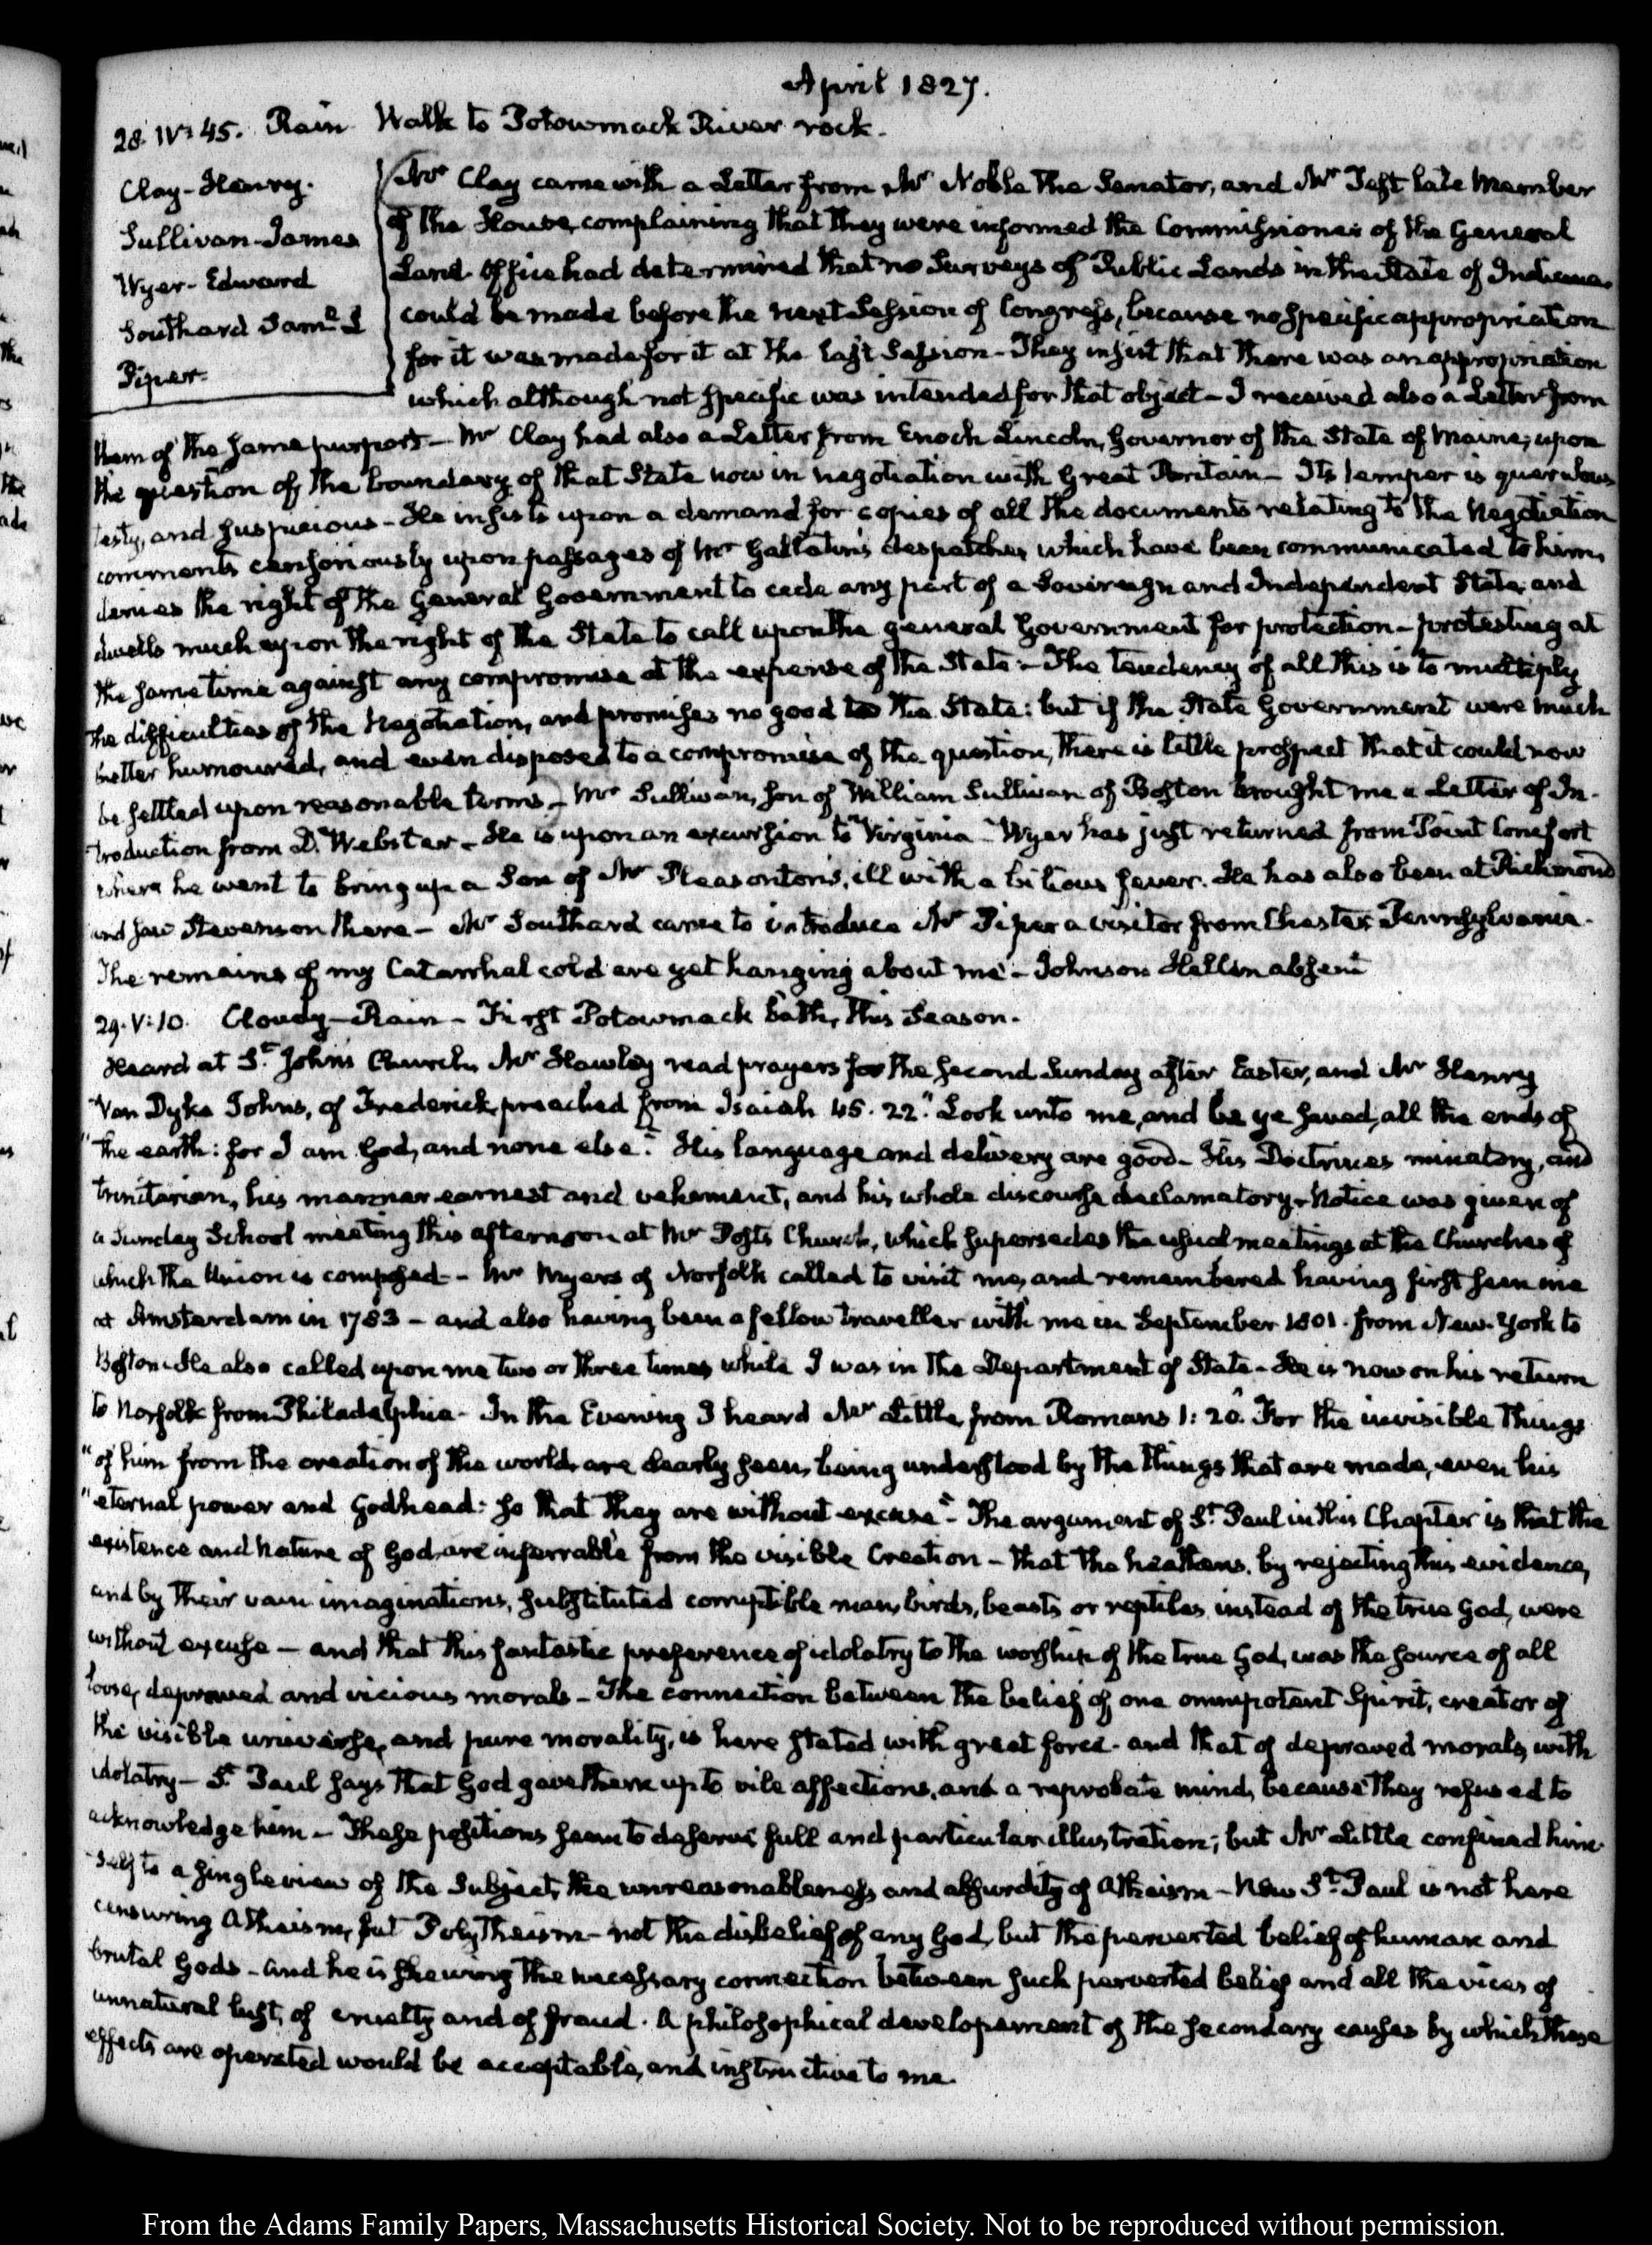 April 1827.
28. IV:45. Rain Walk to Potowmack River rock.
Clay-Henry.
Sullivan-James
Wyer-Edward
Southard Saml. L
Piper.
Mr Clay came with a Letter from Mr Noble the Senator, and Mr Test late Member
of the House, complaining that they were informed the Commissioner of the General
Land Office had determined that no Surveys of Public Lands in the State of Indiana
could be made before the next Session of Congress, because no specific appropriation
for it was made for it at the last Session - They insist that there was an appropriation
which although not specific was intended for that object - I received also a Letter from
them of the same purport - Mr Clay had also a Letter from Enoch Lincoln, Governor of the State of Maine, upon
the question of the boundary of that State now in negotiation with Great Britain - Its temper is querulous
testy, and suspicious - He insists upon a demand for copies of all the documents relating to the Negotiation
comments censoriously upon passages of Mr Gallatin's despatches which have been communicated to him,
denies the right of the General Government to cede any part of a Sovereign and Independent State, and
dwells much upon the right of the State to call upon the general Government for protection - protesting at
the same time against any compromise at the expense of the State - The tendency of all this is to multiply
the difficulties of the Negotiation, and promises no good to the State: but if the State Government were much
better humoured, and even disposed to a compromise of the question, there is little prospect that it could now
be settled upon reasonable terms - Mr Sullivan, son of William Sullivan of Boston brought me a Letter of In-
troduction from D. Webster - He is upon an excursion to Virginia - Wyer has just returned from Point Comfort
where he went to bring up a Son of Mr Pleasonton's, ill with a bilious fever. He has also been at Richmond
and saw Stevenson there - Mr Southard came to introduce Mr Piper a visitor from Chester Pennsylvania.
The remains of my Catarrhal cold are yet hanging about me - Johnson Hellen absent
29. V:10. Cloudy - Rain - First Potowmack bath, this Season.
Heard at St. Johns Church, Mr Hawley read prayers for the second Sunday after Easter, and Mr Henry
Van Dyke Johns, of Frederick, preached from Isaiah 45. 22. "Look unto me, and be ye saved, all the ends of
"the earth: for I am God, and none else." His language and delivery are good - His Doctrines minatory, and
trinitarian, his manner earnest and vehement, and his whole discourse declamatory - Notice was given of
a Sunday School meeting this afternoon at Mr Post's Church, which supersedes the usual meetings at the Churches of
which the Union is composed - Mr Myers of Norfolk called to visit me, and remembered having first seen me
at Amsterdam in 1783 - and also having been a fellow traveller with me in September 1801. from New-York to
Boston. He also called upon me two or three times while I was in the Department of State - He is now on his return
to Norfolk from Philadelphia - In the Evening I heard Mr Little, from Romans 1: 20. "For the invisible Things
"of him from the creation of the world, are clearly seen, being understood by the things that are made, even his
"eternal power and Godhead: so that they are without excuse" - The argument of St. Paul in this Chapter is that the
existence and Nature of God, are inferrable from the visible Creation - that the heathens, by rejecting this evidence,
and by their vain imaginations, substituted corruptible man, birds, beasts or reptiles, instead of the true God, were
without excuse - and that this fantastic preference of idolatry to the worship of the true God, was the source of all
loose, depraved and vicious morals - The connection between the belief of one omnipotent Spirit, creator of
the visible universe, and pure morality, is here stated with great force - and that of depraved morals, with
idolatry - St Paul says that God gave them up to vile affections, and a reprobate mind, because they refused to
acknowledge him - These positions seem to deserve full and particular illustration; but Mr Little confined him-
self to a single view of the Subject, the unreasonableness and absurdity of Atheism - Now St. Paul is not here
censuring Atheism, but Polytheism - not the disbelief of any God, but the perverted belief of human and
brutal Gods - and he is shewing the necessary connection between such perverted belief and all the vices of
unnatural lust, of cruelty and of fraud. A philosophical developement of the secondary causes by which these
effects are operated would be acceptable, and instructive to me.
From the Adams Family Papers, Massachusetts Historical Society. Not to be reproduced without permission.